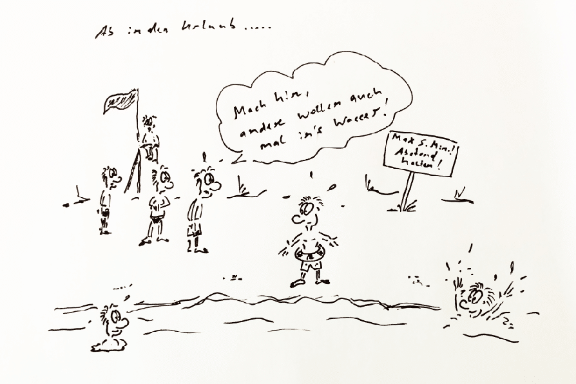 Ab in den Urlaub .....
Mach hin,
andere wollen auch
mal in's Wasser!
Max 5. Min.!
Abstand
halten!